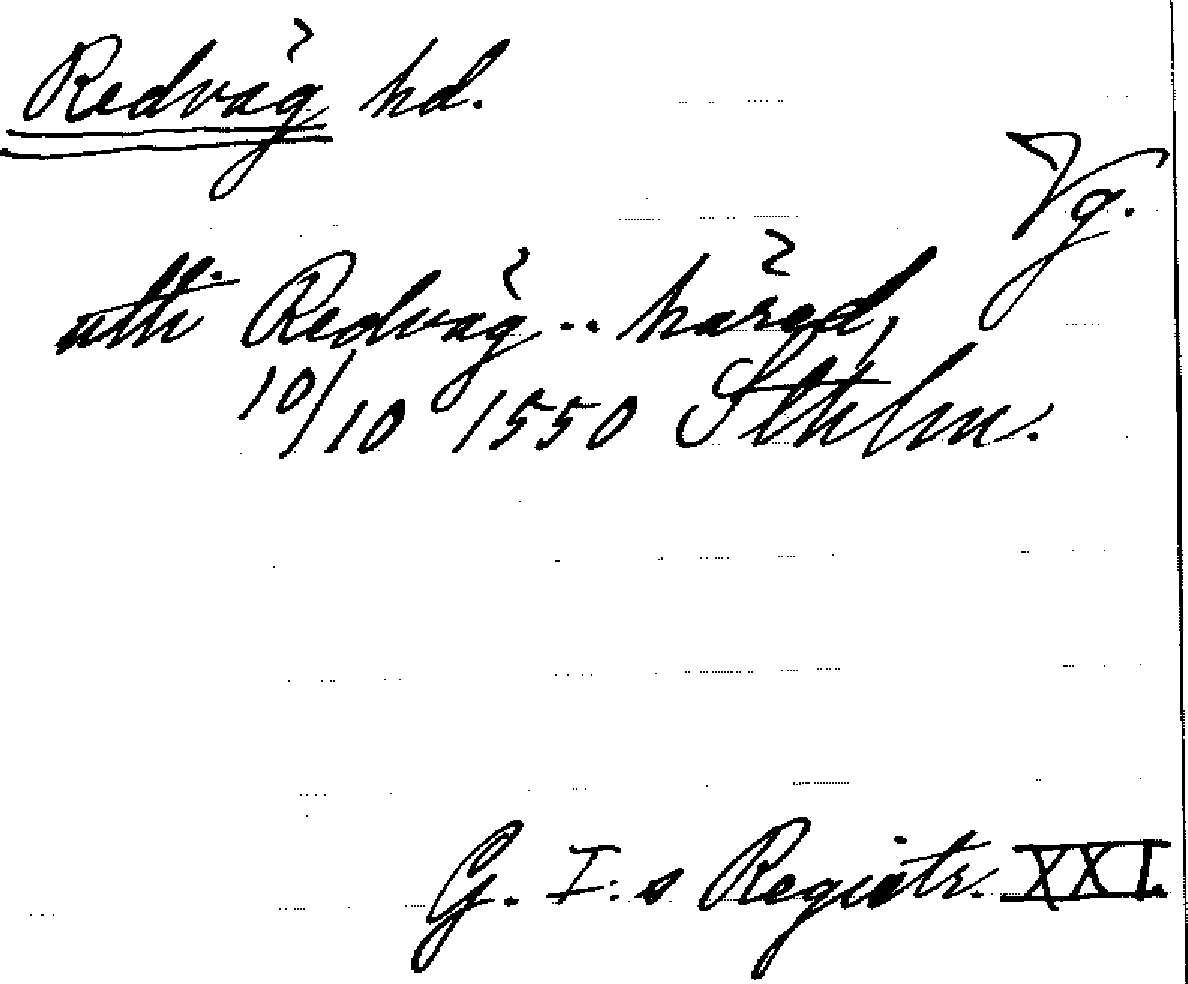 Redvåg hd.
Vg.
utti Redvåg .. hårad,
10/10 1550 Sthlm.
G. I:s Registr. XXI.